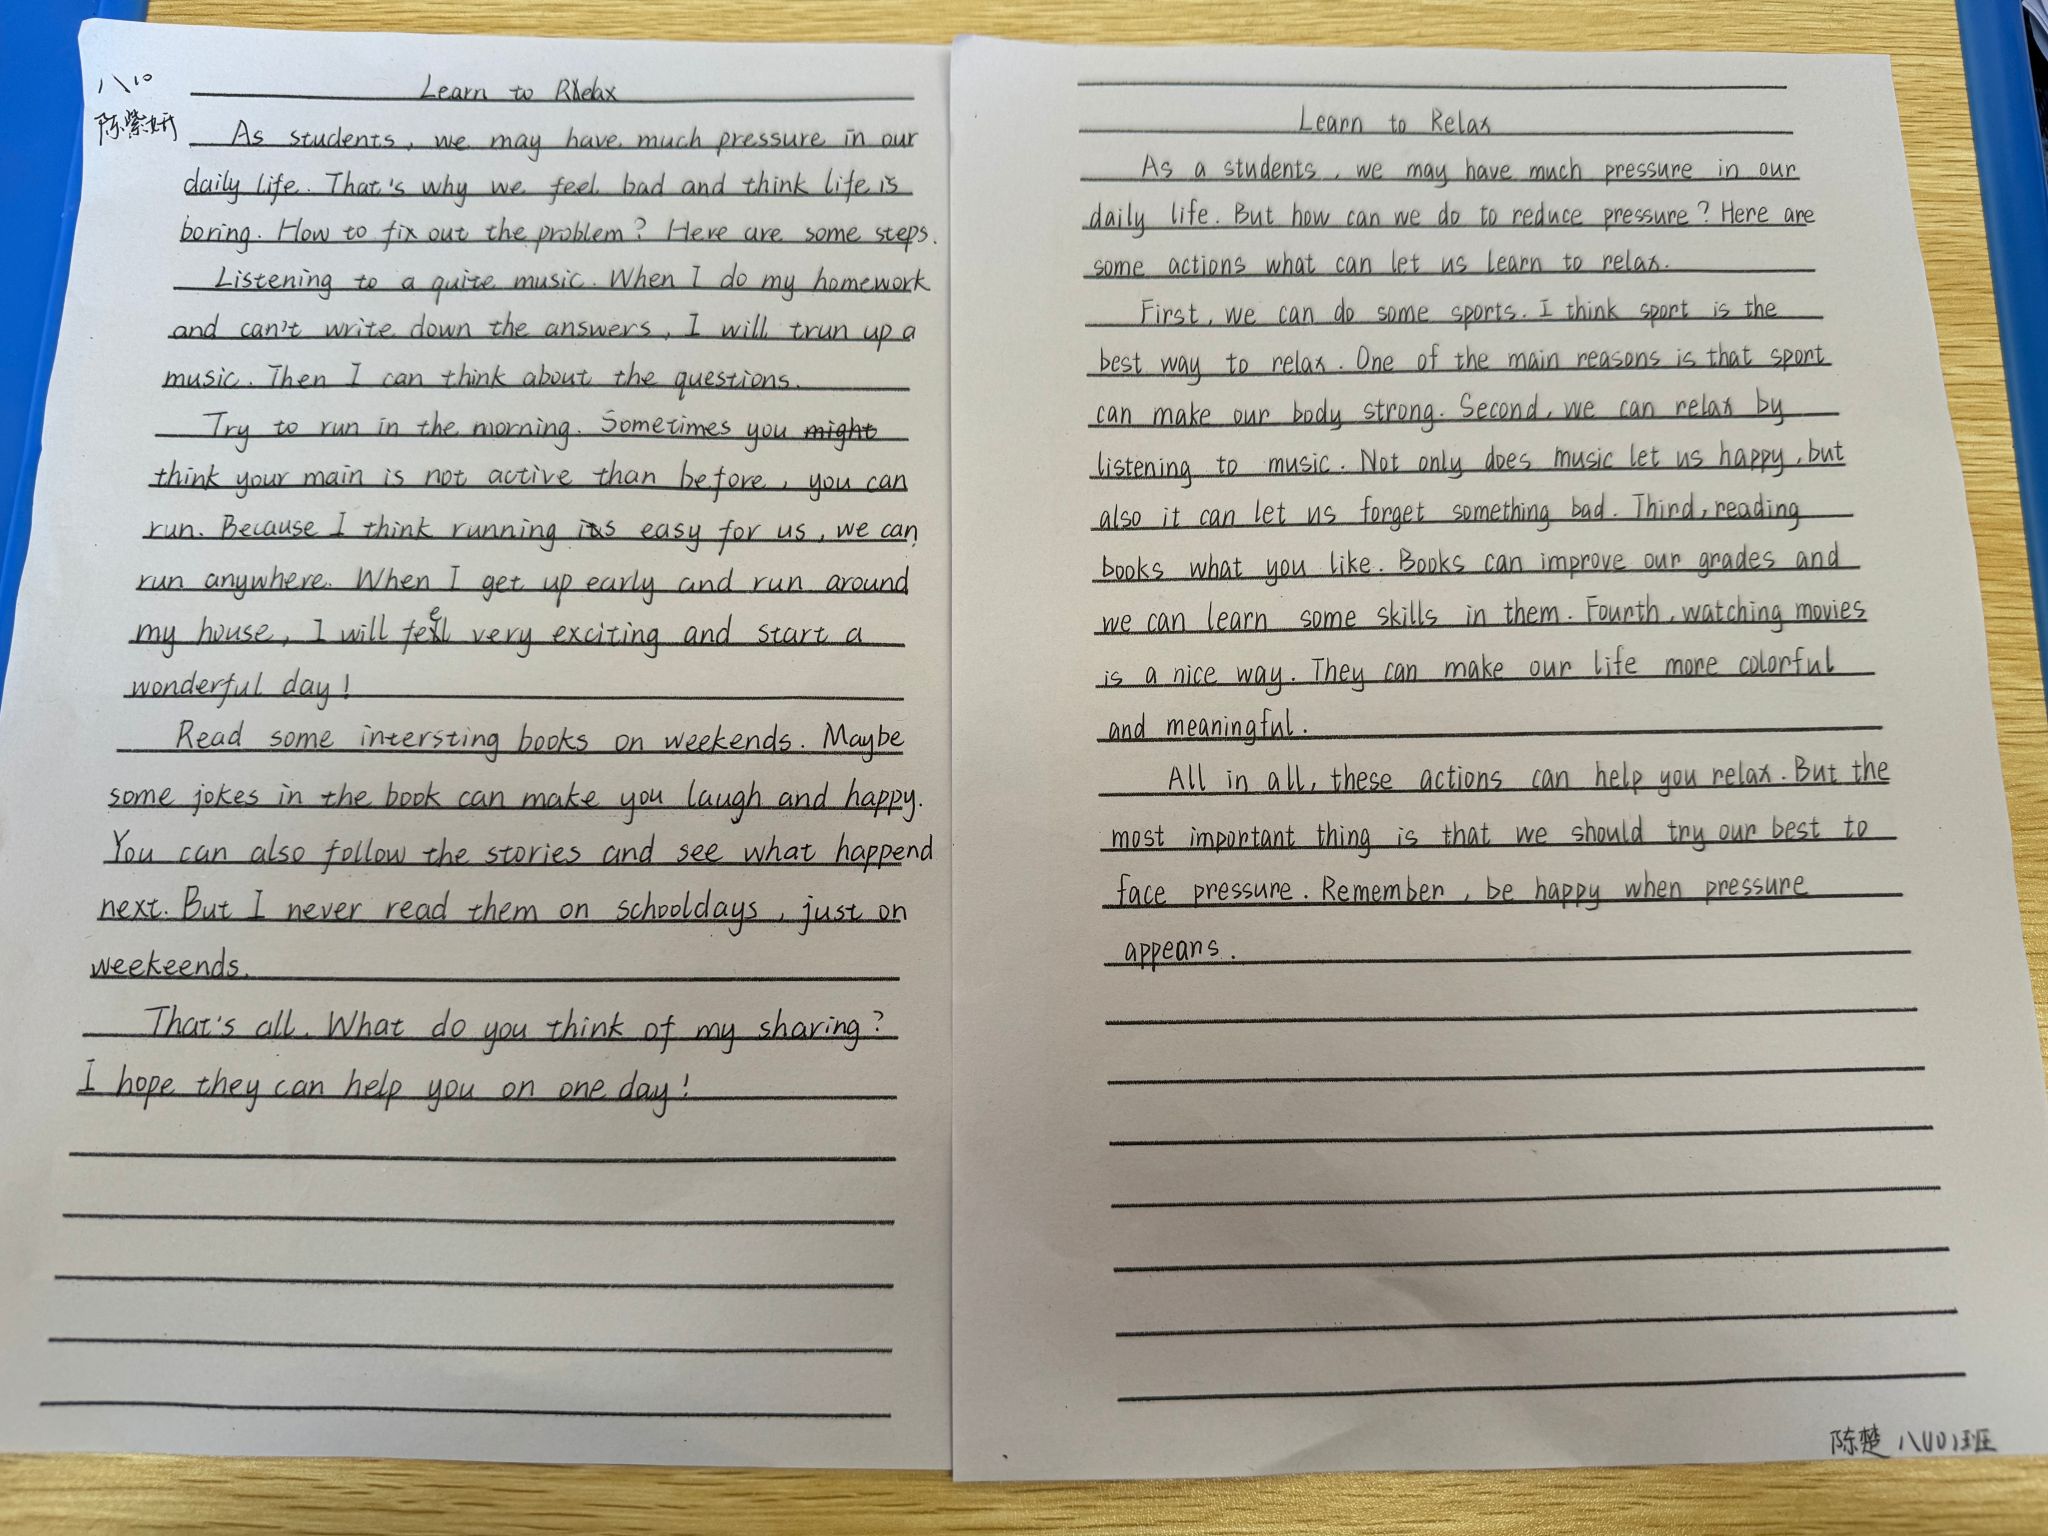 八10
陈紫妍
Learn to Relax
As students, we may have much pressure in our
daily life. That's why we feel bad and think life is
boring. How to fix out the problem? Here are some steps.
Listening to a quite music. When I do my homework
and can't write down the answers, I will trun up a
music. Then I can think about the questions.
Try to run in the morning. Sometimes you might
think your main is not active than before, you can
run. Because I think running is easy for us, we can
run anywhere. When I get up early and run around
my house, I will feel very exciting and start a
wonderful day!
Read some intersting books on weekends. Maybe
some jokes in the book can make you laugh and happy.
You can also follow the stories and see what happend
next. But I never read them on schooldays, just on
weekeends.
That's all. What do you think of my sharing?
I hope they can help you on one day!
Learn to Relax
As a students, we may have much pressure in our
daily life. But how can we do to reduce pressure? Here are
some actions what can let us learn to relax.
First, we can do some sports. I think sport is the
best way to relax. One of the main reasons is that sport
can make our body strong. Second, we can relax by
listening to music. Not only does music let us happy, but
also it can let us forget something bad. Third, reading
books what you like. Books can improve our grades and
we can learn some skills in them. Fourth, watching movies
is a nice way. They can make our life more colorful
and meaningful.
All in all, these actions can help you relax. But the
most important thing is that we should try our best to
face pressure. Remember, be happy when pressure
appears.
陈楚 八(10)班